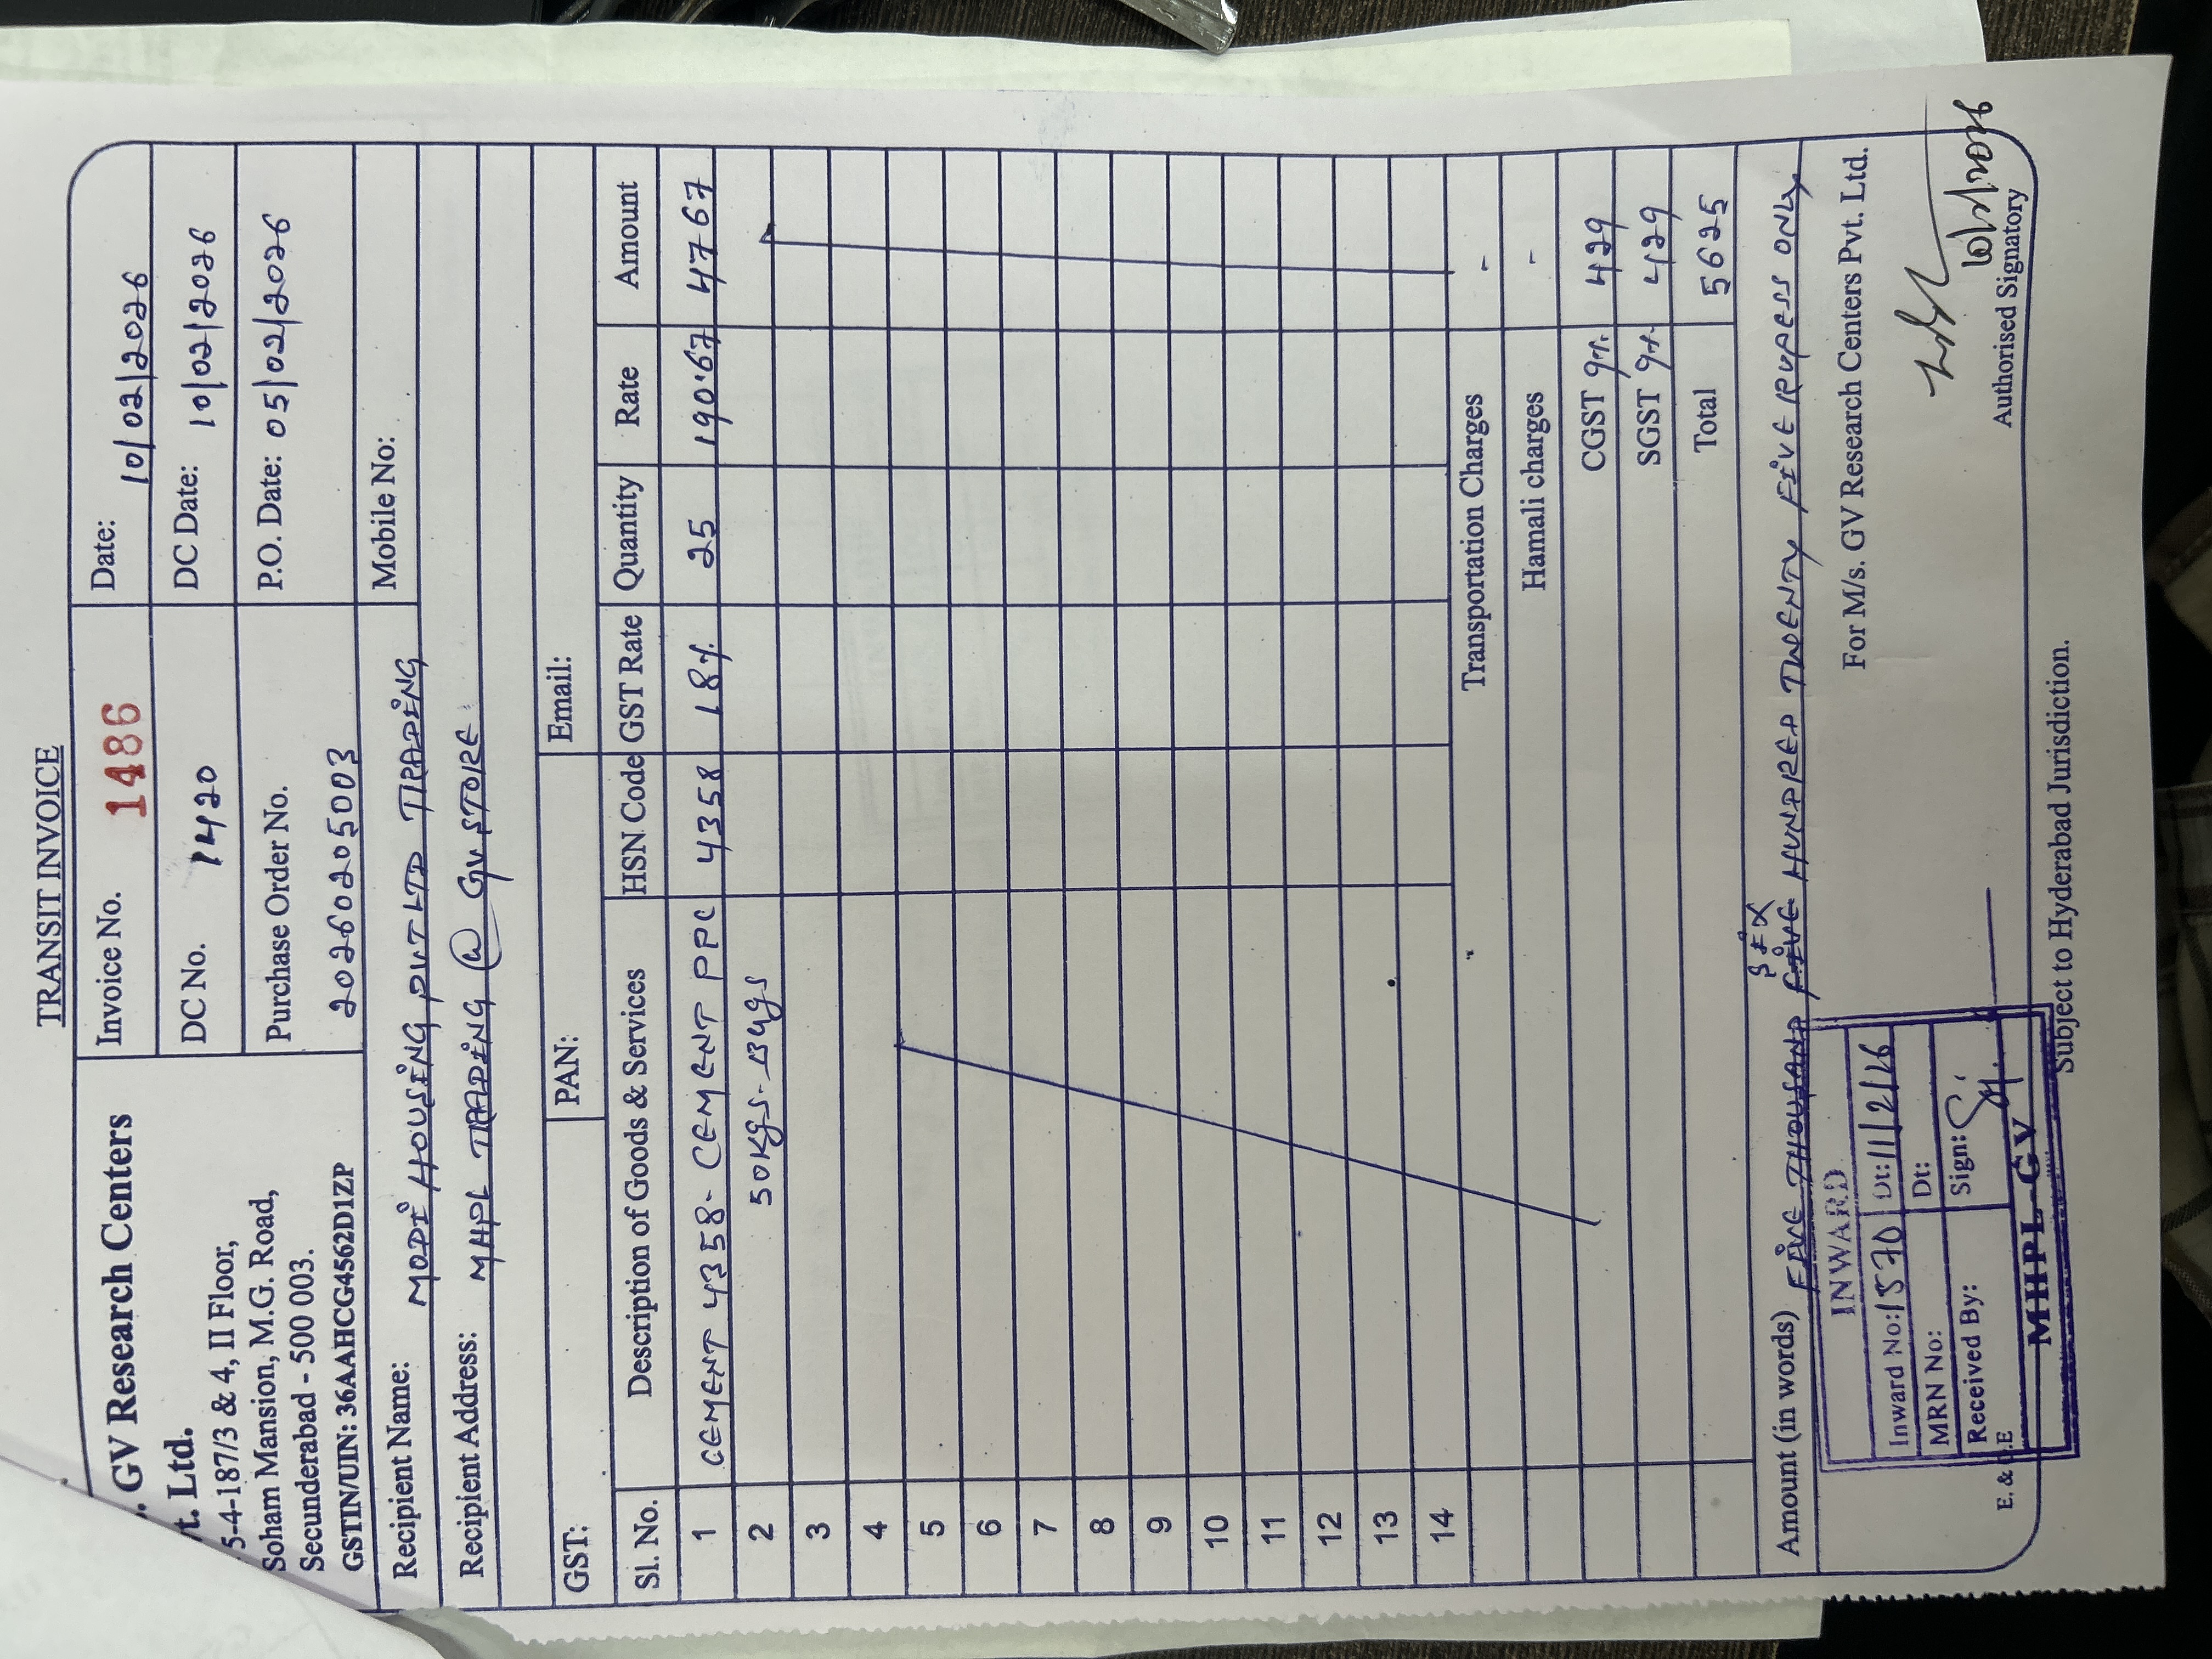 TRANSIT INVOICE
. GV Research Centers
t. Ltd.
5-4-187/3 & 4, II Floor,
Soham Mansion, M.G. Road,
Secunderabad - 500 003.
GSTIN/UIN: 36AAHCG4562D1ZP
Invoice No. 1486 Date: 10/02/2026
DC No. 1420 DC Date: 10/02/2026
Purchase Order No. P.O. Date: 05/02/2026
20260205003
Recipient Name: MODI HOUSING PVT LTD TRADING Mobile No:
Recipient Address: MHPL TRADING @ GV STORE
GST: PAN: Email:
Sl. No. Description of Goods & Services HSN Code GST Rate Quantity Rate Amount
1 CEMENT 4358- CEMENT PPC 4358 18% 25 190.67 4767
2 50Kgs-Bags
3
4
5
6
7
8
9
10
11
12
13
14
Transportation Charges -
Hamali charges -
CGST 9% 429
SGST 9% 429
Total 5625
SIX
Amount (in words) FIVE THOUSAND FIVE HUNDRED TWENTY FIVE RUPESS ONLY
For M/s. GV Research Centers Pvt. Ltd.
INWARD
Inward No: 1570 Dt: 11/2/26
MRN No: Dt:
Received By: Sign:
MHPL-GV
E. & O.E
10/2/2026
Authorised Signatory
Subject to Hyderabad Jurisdiction.